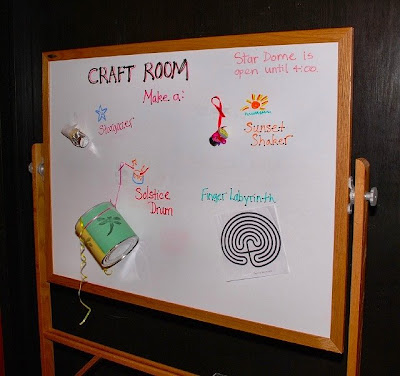 CRAFT ROOM
Star Dome is
open until 4:00.
Make a:
Stargazer
Sunset
Shaker
Solstice
Drum
Finger Labyrinth